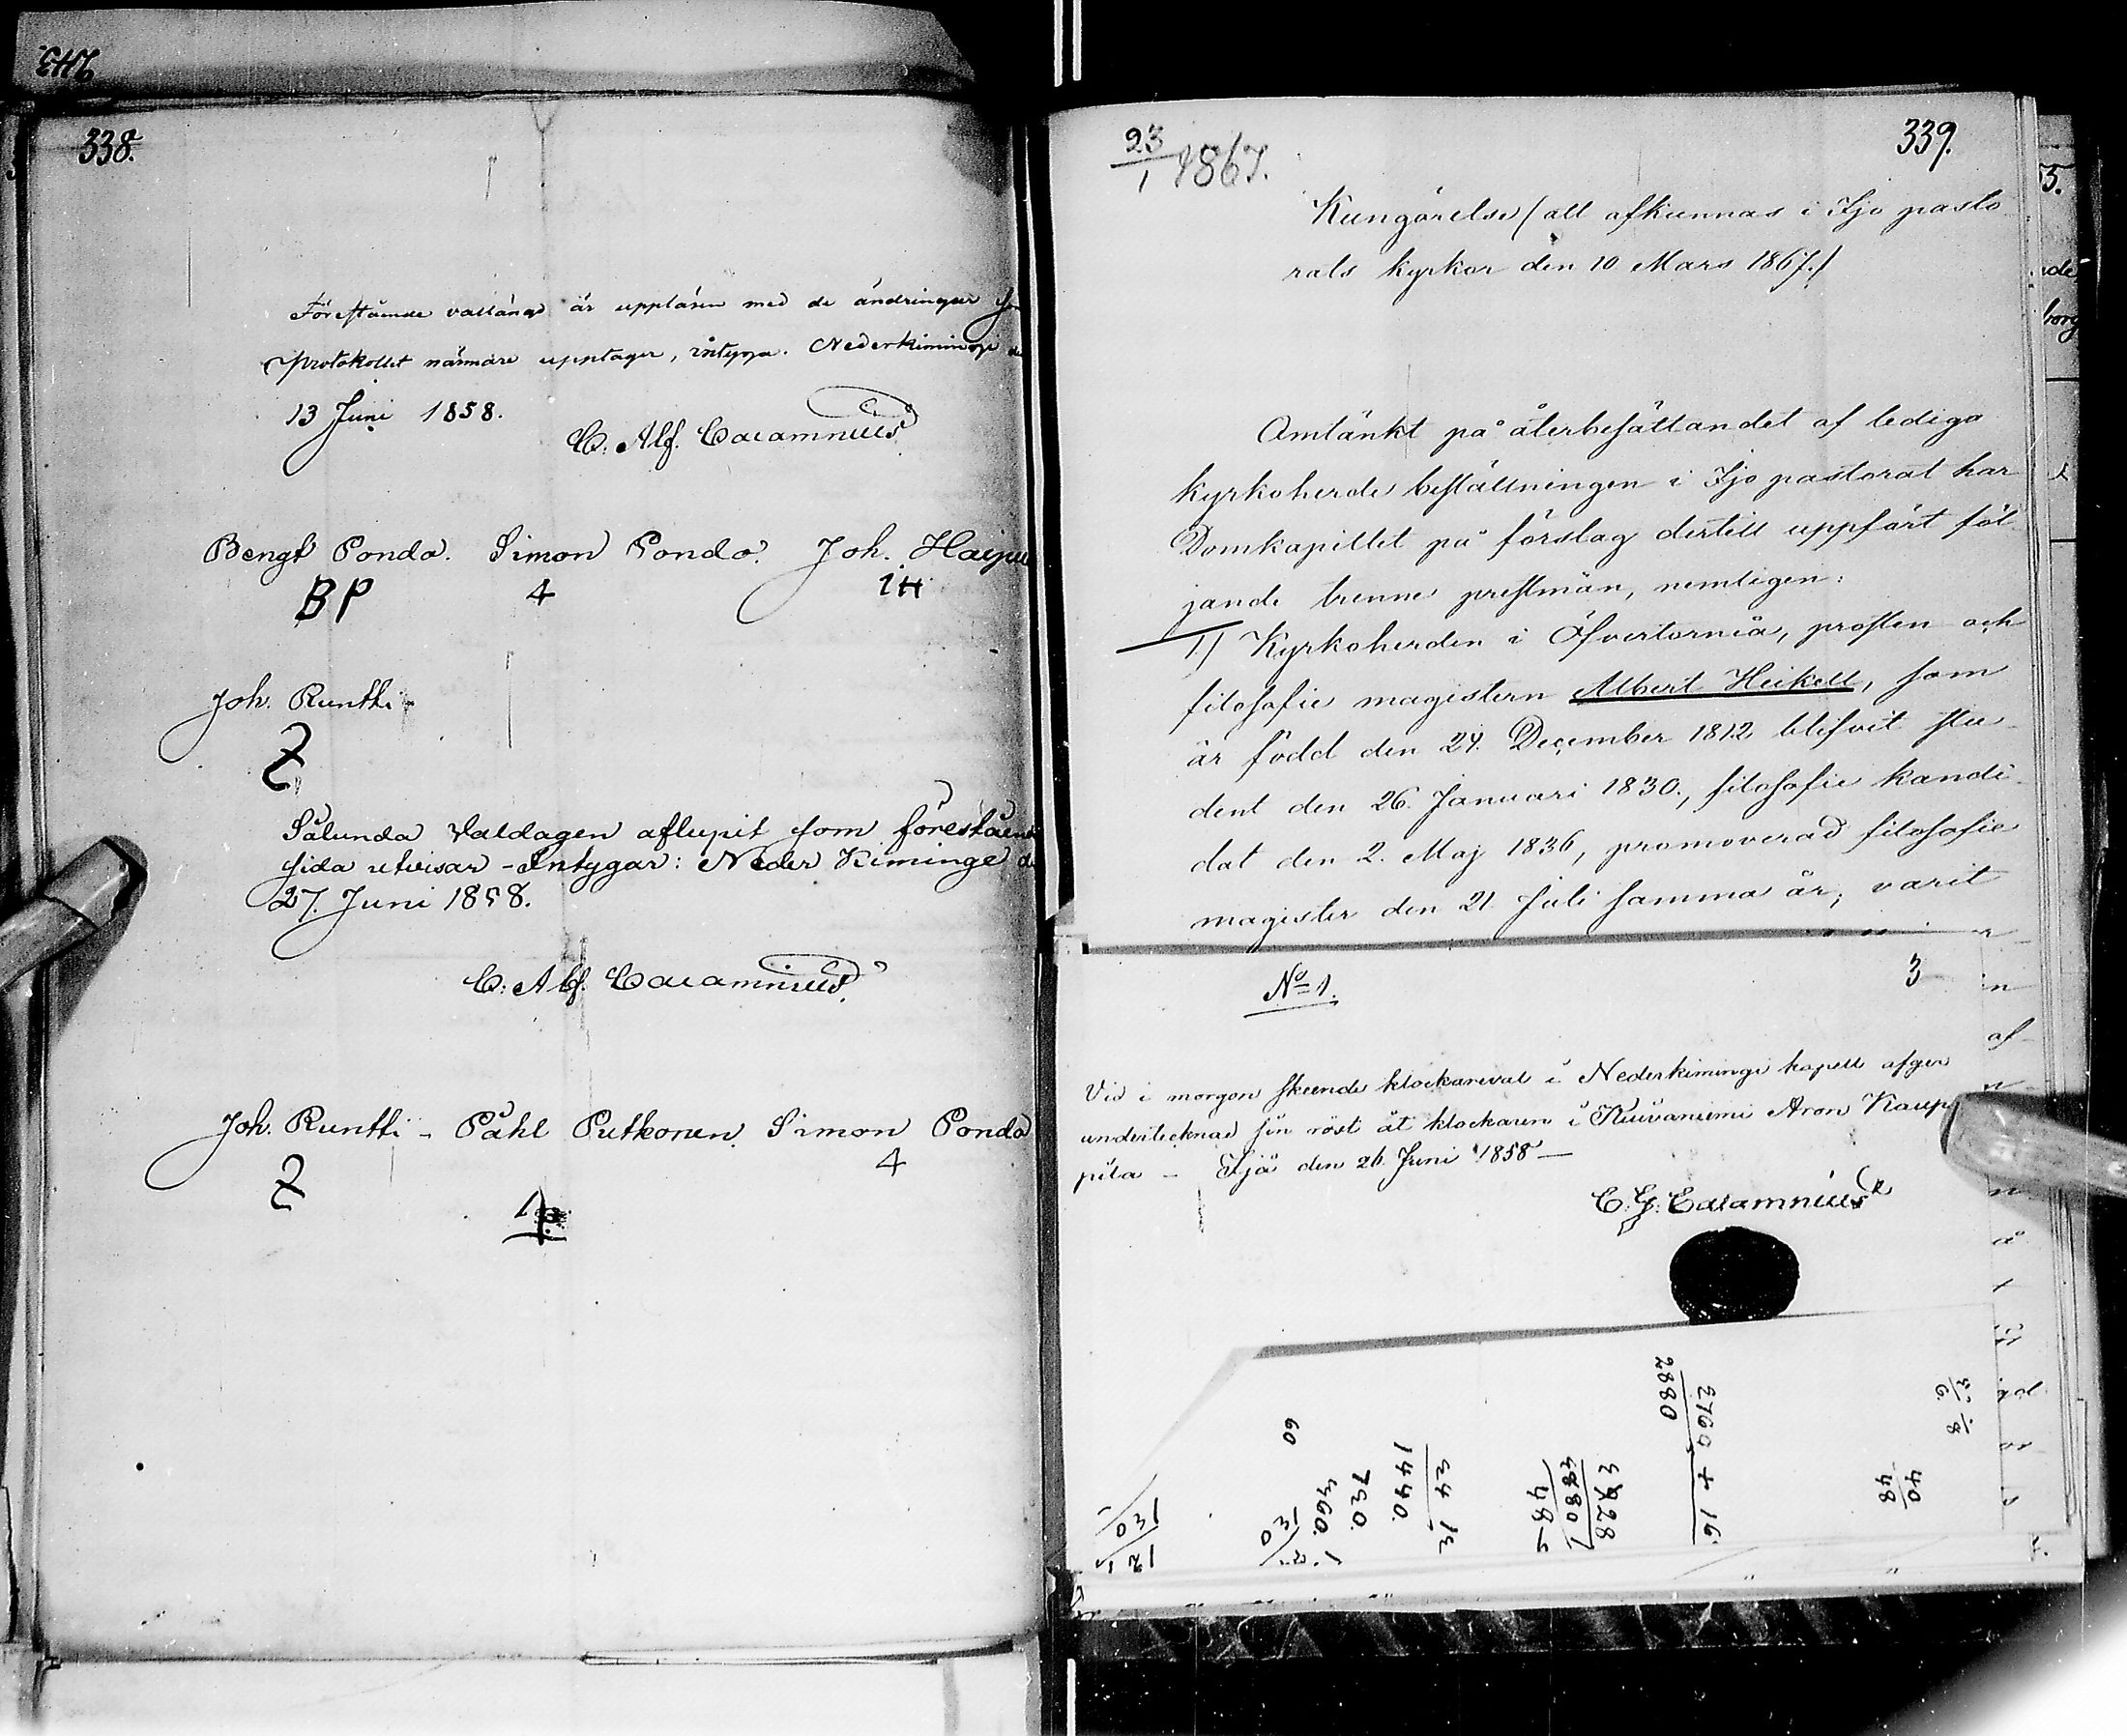 338.
Förestående vallängd är uppläsen med de ändringar som
Protokollet närmare upptager, intygga. Nederkiminge de
13 Juni 1858.
C. Alf. Calamnius
Bengt Pondo. Simon Pondo. Joh. Haipu
BP 4 IH
Joh. Runtti
Sålunda Valdagen aflupit som föreståend
sida utvisar - Intygar: Neder Kiminge de
27. Juni 1858.
C. Alf. Calamnius
Joh. Runtti - Påhl Putkonen Simon Pondo
4
339.
23/1 1867.
Kungörelse (att afkunnas i Ijo pasto
rats kyrkor den 10 Mars 1867.)
Omtänkt på återbesättandet af lediga
kyrkoherde beställningen i Ijo pastorat har
Domkapitlet på förslag dertill uppfört föl
jande trenne prestmän, nemligen:
1) Kyrkoherden i Öfvertorneå, prosten och
filosofie magistern Albert Heikell, som
är född den 24. December 1812 blifvit stu-
dent den 26. Januari 1830., filosofie kandi-
dat den 2. Maj 1836, promoverad filosofie
magister den 21. Juli samma år, varit
No 1. 3
Vid i morgon skeende klockareval i Nederkiminge kapell afger
undertecknad sin röst åt klockaren i Kuivaniemi Aron Kaup
pila - Ijå den 26. Juni 1858 -
C. G. Calamnius
40
48
2760 + 16
2880
24 12
1440.
720.
360.
60